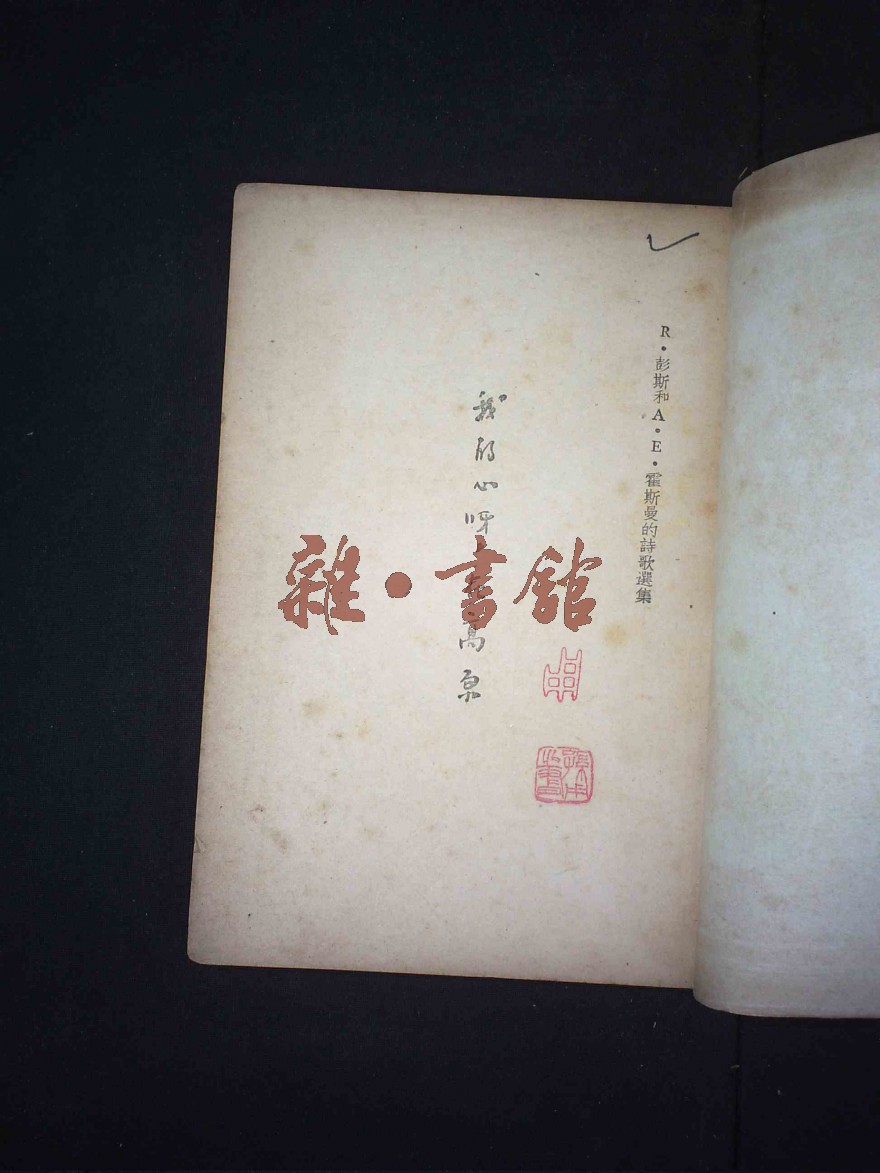 R·彭斯和A·E·霍斯曼的詩歌選集
我的心呀
高原
雜·書館